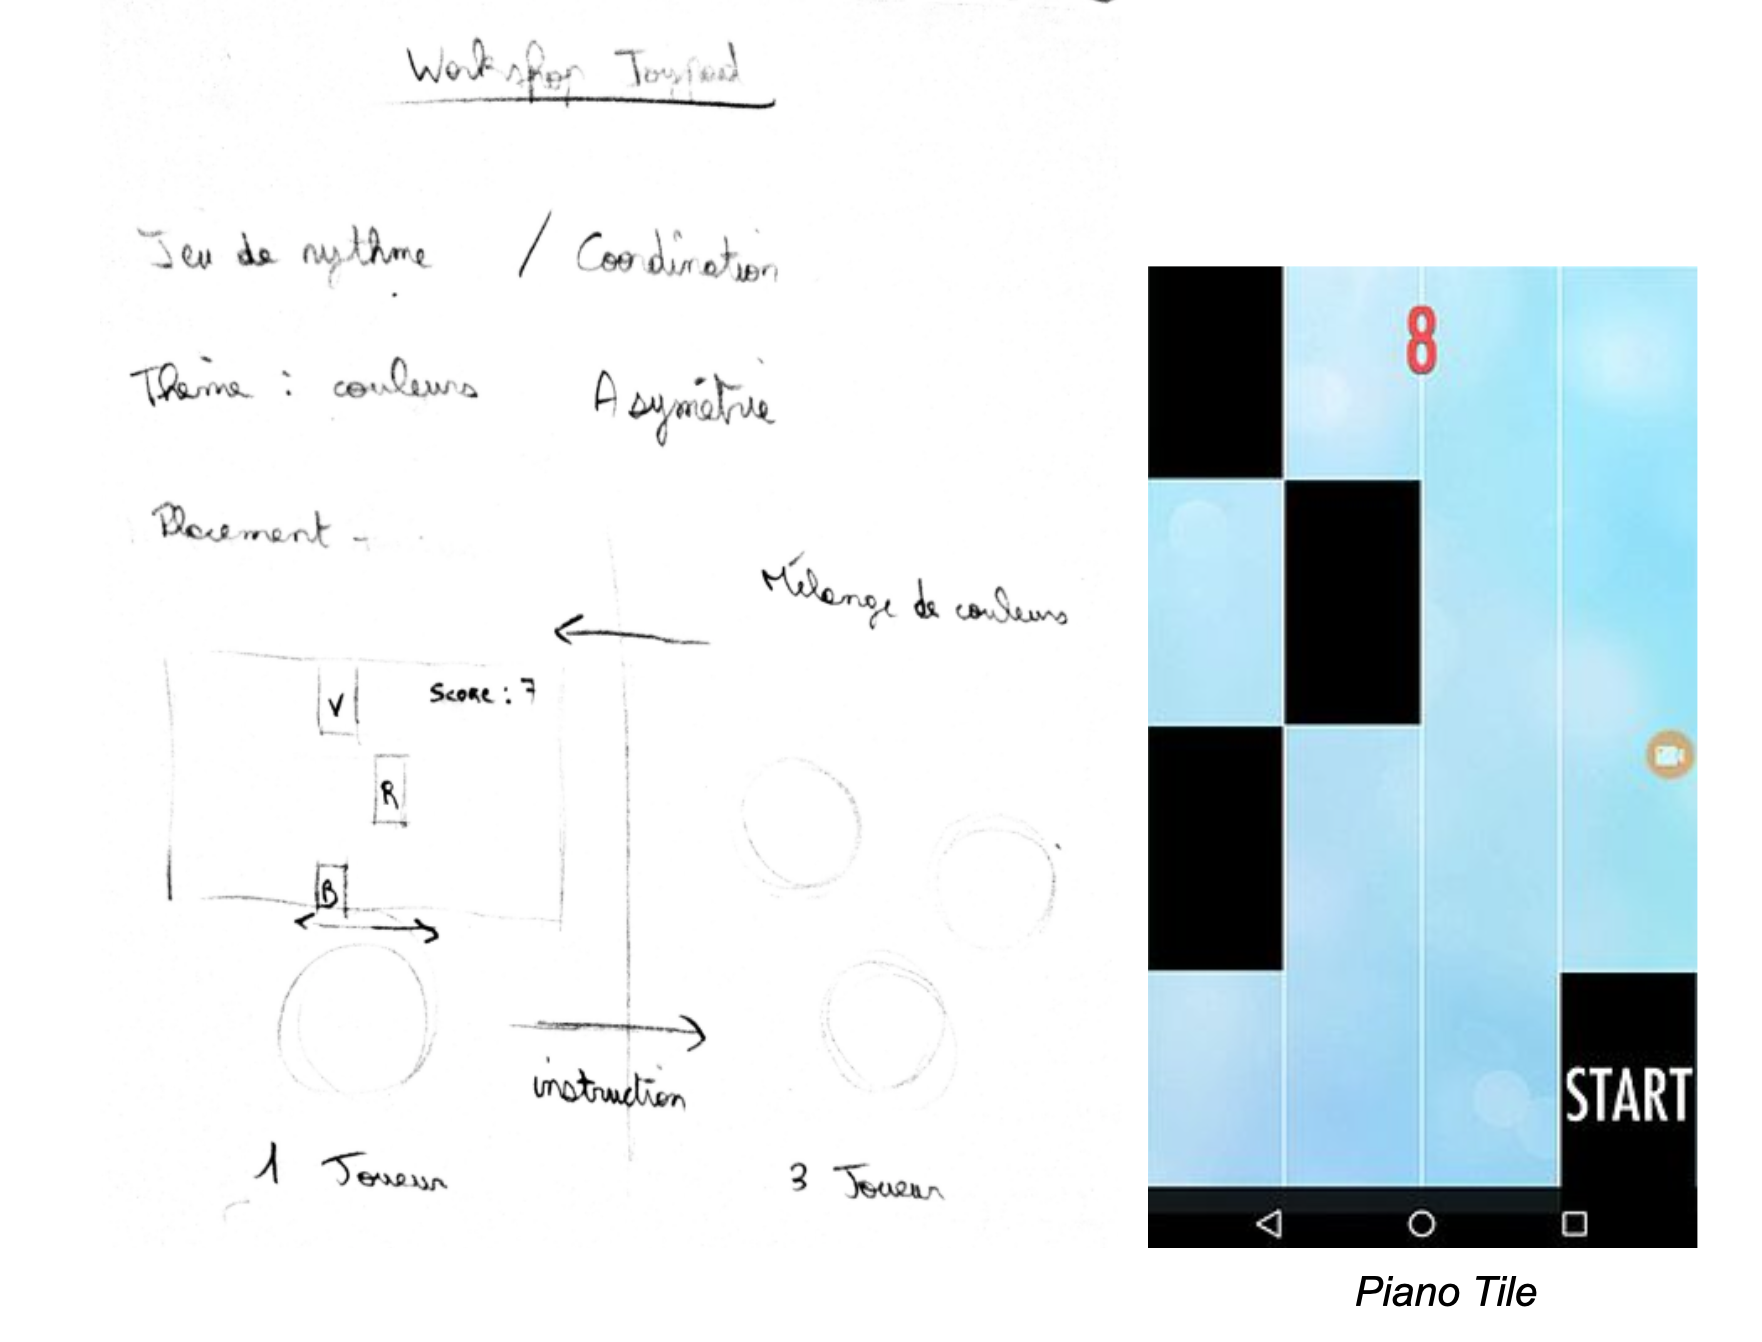 Workshop Joypad
Jeu de rythme / Coordination
Thème : couleurs Asymétrie
Placement -
Mélange de couleurs
V
Score : 7
R
B
instruction
1 Joueur
3 Joueur
8
START
Piano Tile